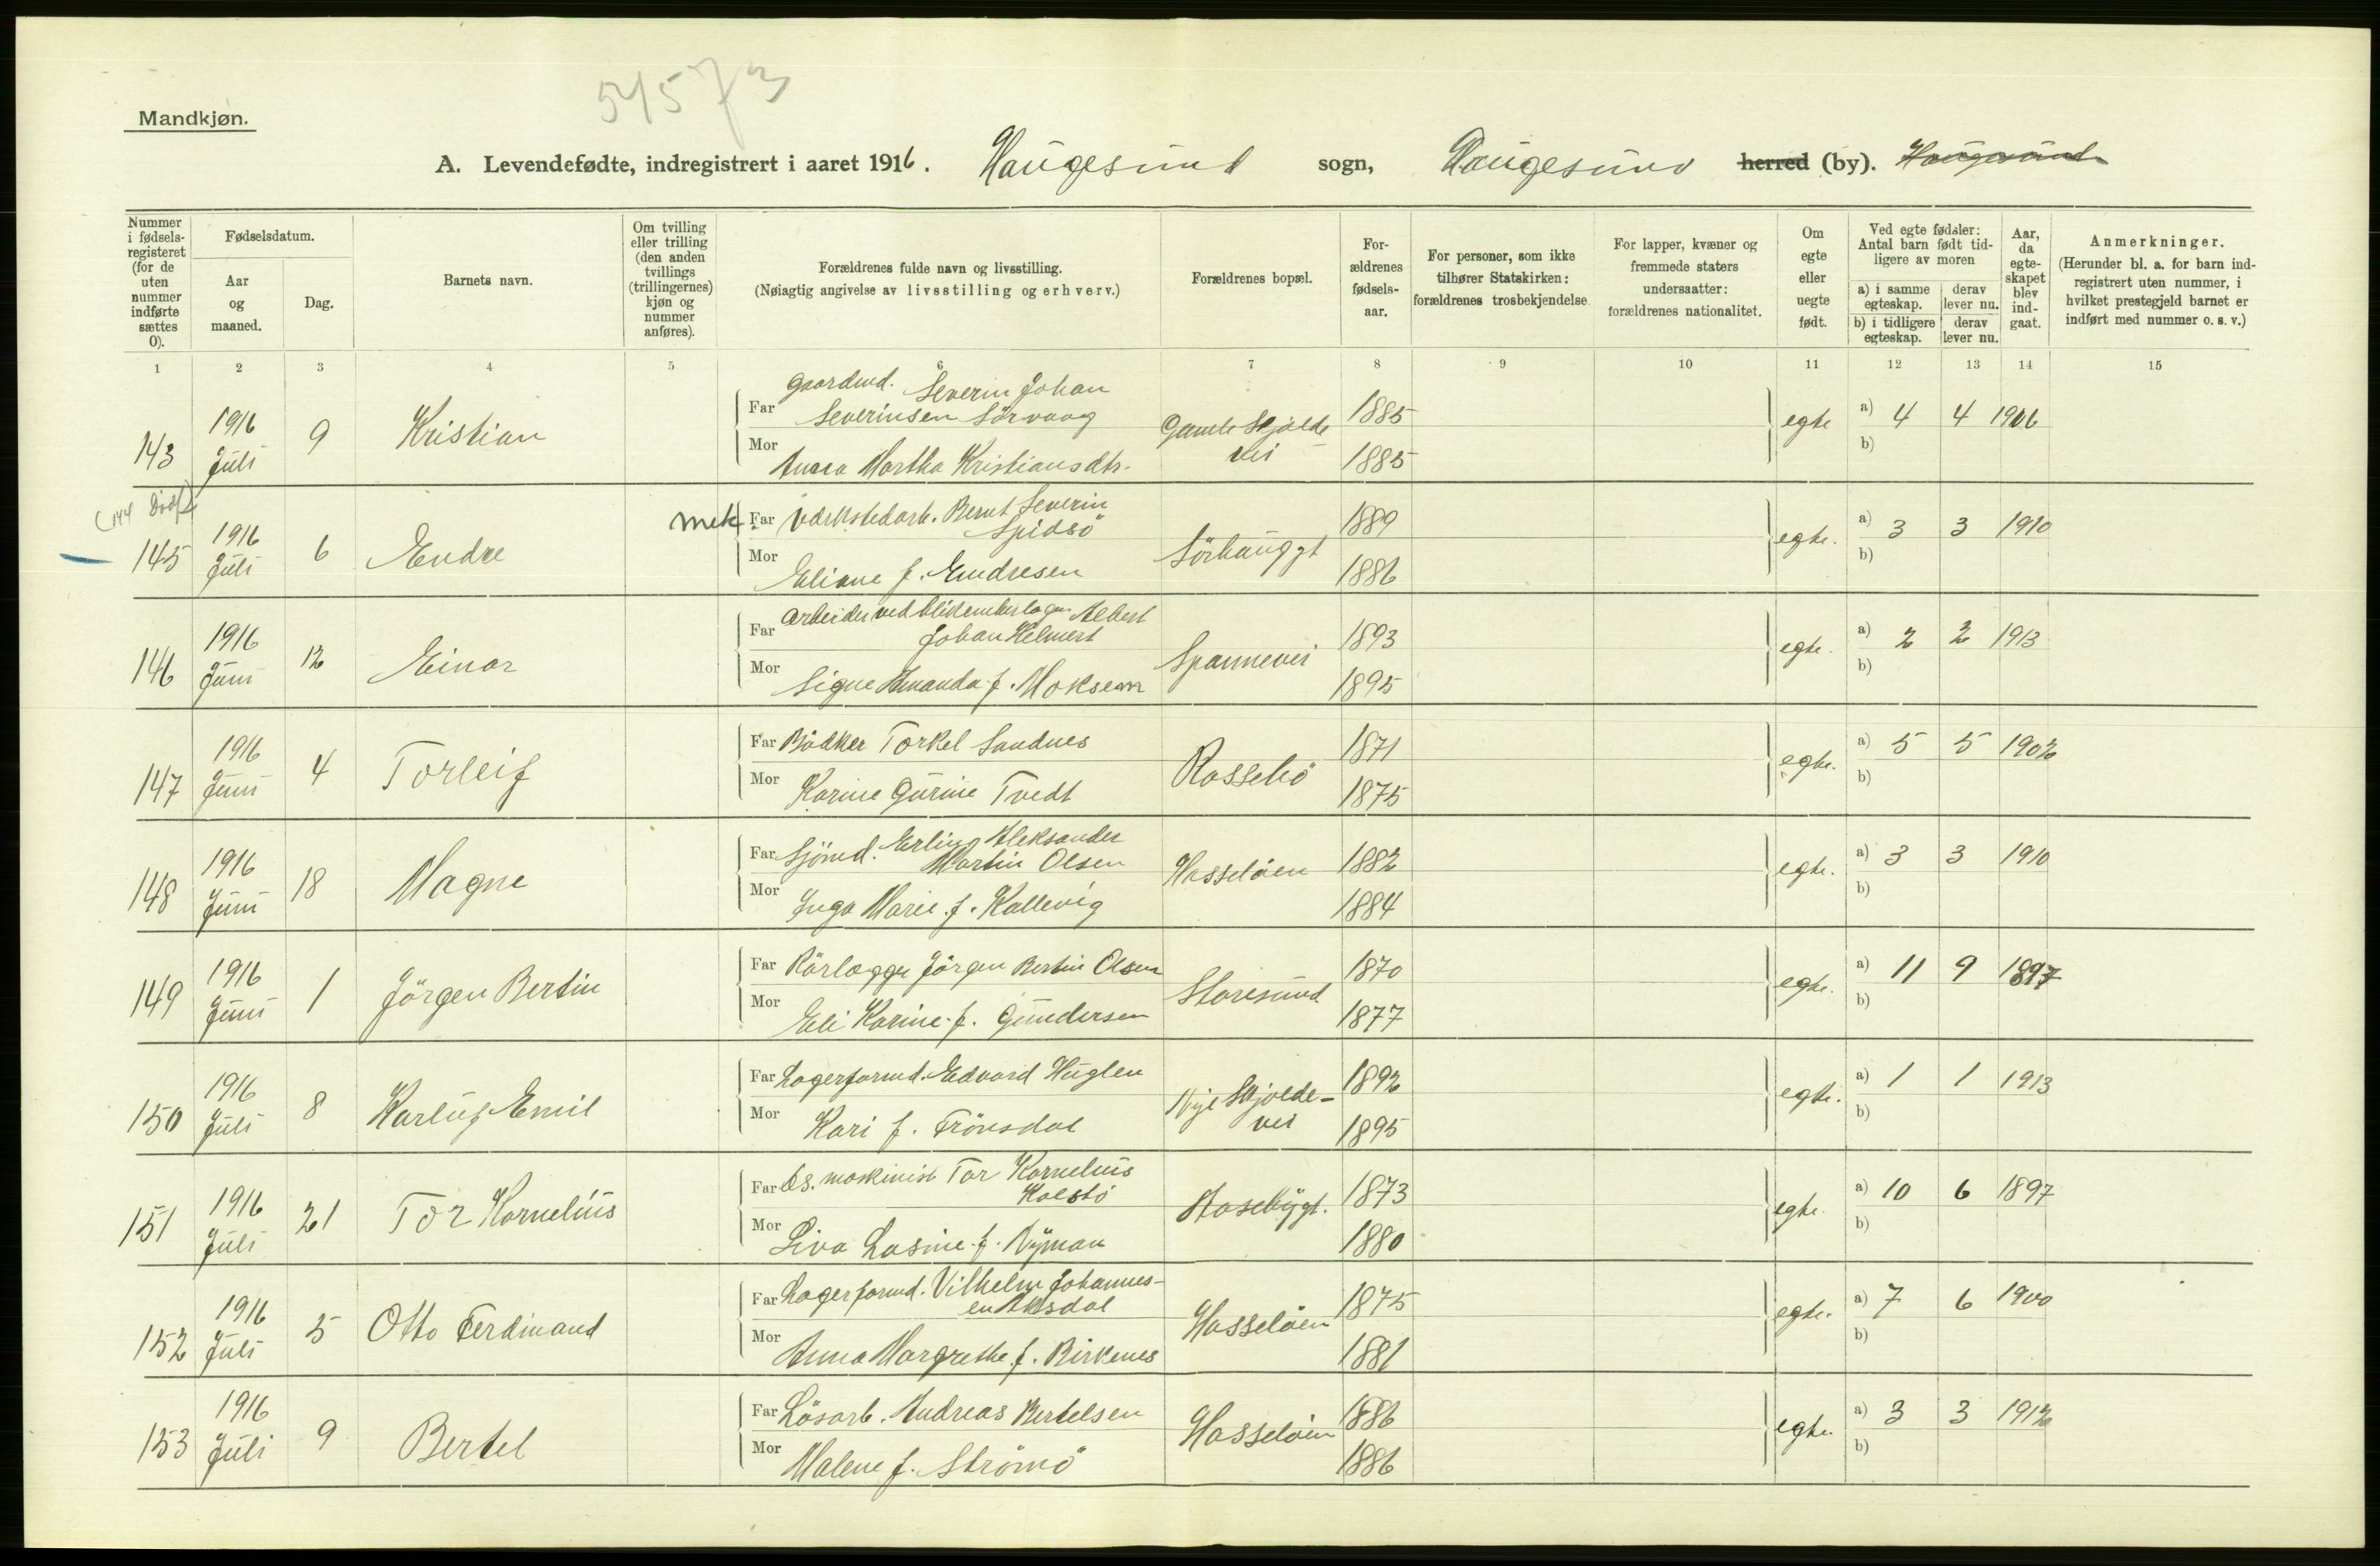 54573
Mandkjøn.
A. Levendefødte, indregistrert i aaret 1916. Haugesund sogn, Haugesund herred (by). Haugesund
Nummer i fødsels-registeret (for de uten nummer indførte sættes 0).
Fødselsdatum.
Aar og maaned.
Dag.
Barnets navn.
Om tvilling eller trilling (den anden tvillings (trillingernes) kjøn og nummer anføres).
Forældrenes fulde navn og livsstilling.
(Nøiagtig angivelse av livsstilling og erhverv.)
Forældrenes bopæl.
For-ældrenes fødsels-aar.
For personer, som ikke tilhører Statskirken: forældrenes trosbekjendelse
For lapper, kvæner og fremmede staters undersaatter: forældrenes nationalitet.
Om egte eller uegte født.
Ved egte fødsler: Antal barn født tid-ligere av moren
a) i samme egteskap.
derav lever nu.
b) i tidligere egteskap.
derav lever nu.
Aar, da egte-skapet blev ind-gaat.
Anmerkninger.
(Herunder bl. a. for barn ind-registrert uten nummer, i hvilket prestegjeld barnet er indført med nummer o. s. v.)
1 2 3 4 5 6 7 8 9 10 11 12 13 14 15
143 1916 Juli 9 Kristian
Far Gaardmd. Severin Johan
Severinsen Sörvaag
Mor Anna Martha Kristiansdtr.
Gamle Skjolde
vei
1885
1885
egte a) 4 4 1906
b)
(144 Död)
145 1916 Juli 6 Endre
mek. Far Værkstedarb. Bernt Severin
Spidsö
Mor Eliane f. Endresen
Sörhauggt
1889
1886
egte. a) 3 3 1910
b)
146 1916 Juni 12 Einar
Far Arbeider ved Albert
Johan Helmert
Mor Signe Amanda f. Moksem
Spannevei
1893
1895
egte. a) 2 2 1913
b)
147 1916 Juni 4 Torleif
Far Bödker Torkel Sandnes
Mor Karine Gurine Tvedt
Rossebö
1871
1875
egte. a) 5 5 1902
b)
148 1916 Juni 18 Magne
Far Sjömd. Erling Aleksander
Martin Olsen
Mor Inga Marie f. Kallevig
Hasselöen
1882
1884
egte. a) 3 3 1910
b)
149 1916 Juni 1 Jörgen Bertin
Far Rörlægger Jörgen Bertin Olsen
Mor Eli Karine f. Gundersen
Storesund
1870
1877
egte. a) 11 9 1897
b)
150 1916 Juli 8 Karluf Emil
Far Lagerformd. Edvard Huglen
Mor Kari f. Trönsdal
Nye Skjolde-
vei
1892
1895
egte. a) 1 1 1913
b)
151 1916 Juli 21 Tor Kornelius
Far Ds. maskinist Tor Kornelius
Kolstö
Mor Liva Lasine f. Nyman
1873
1880
egte. a) 10 6 1897
b)
152 1916 Juli 5 Otto Ferdinand
Far Lagerformd. Vilhelm Johannes-
en Aksdal
Mor Anna Margrethe f. Birkenes
Hasselöen
1875
1881
egte. a) 7 6 1900
b)
153 1916 Juli 9 Bertel
Far Lösarb. Andreas Bertelsen
Mor Malene f. Strömö
Hasselöen
1886
1886
egte. a) 3 3 1912
b)